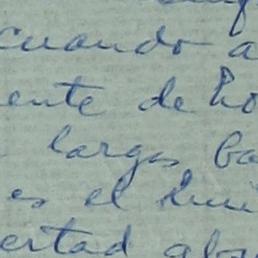 cuando a
ente de ho
largas ba
es el
ertad